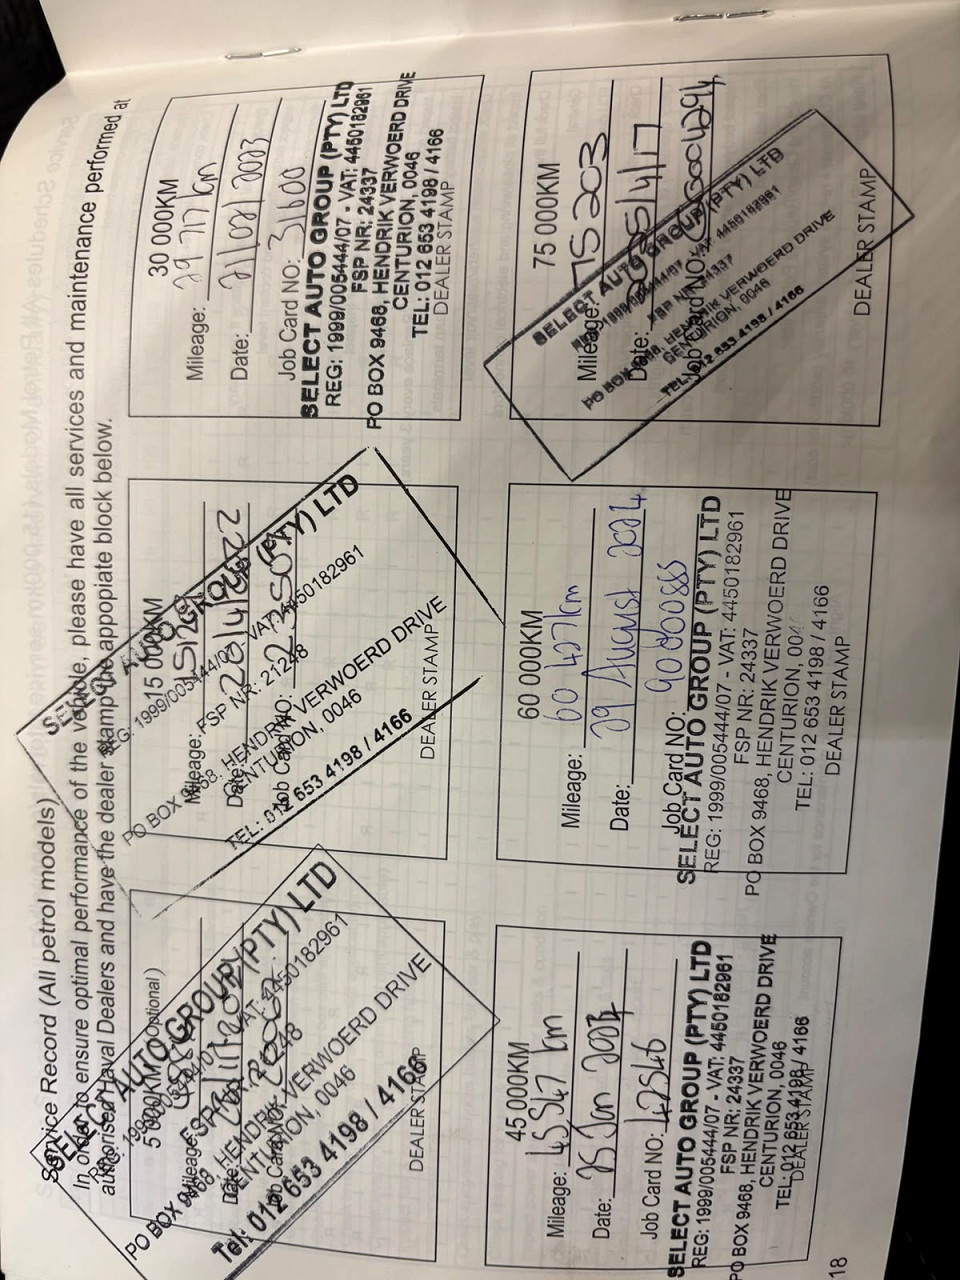 Service Record (All petrol models)
In order to ensure optimal performance of the vehicle, please have all services and maintenance performed at
authorised Haval Dealers and have the dealer stamp the appopiate block below.
5 000KM (Optional)
Mileage:
Date:
Job Card NO:
SELECT AUTO GROUP (PTY) LTD
FSP NR: 21248
PO BOX 9468, HENDRIK VERWOERD DRIVE
CENTURION, 0046
Tel: 012 653 4198 / 4166
DEALER STAMP
15 000KM
Mileage:
Date:
Job Card NO:
SELECT AUTO GROUP (PTY) LTD
REG: 1999/005444/07 - VAT: 4450182961
FSP NR: 21248
PO BOX 9468, HENDRIK VERWOERD DRIVE
CENTURION, 0046
TEL: 012 653 4198 / 4166
DEALER STAMP
30 000KM
Mileage: 29 717 km
Date: 21/02/2023
Job Card NO: 31600
SELECT AUTO GROUP (PTY) LTD
REG: 1999/005444/07 - VAT: 4450182961
FSP NR: 24337
PO BOX 9468, HENDRIK VERWOERD DRIVE
CENTURION, 0046
TEL: 012 653 4198 / 4166
DEALER STAMP
45 000KM
Mileage: 45547 km
Date: 25 Jan 2024
Job Card NO: 42546
SELECT AUTO GROUP (PTY) LTD
REG: 1999/005444/07 - VAT: 4450182961
FSP NR: 24337
PO BOX 9468, HENDRIK VERWOERD DRIVE
CENTURION, 0046
TEL: 012 653 4198 / 4166
DEALER STAMP
60 000KM
Mileage: 60 427 km
Date: 29 August 2024
Job Card NO:
SELECT AUTO GROUP (PTY) LTD
REG: 1999/005444/07 - VAT: 4450182961
FSP NR: 24337
PO BOX 9468, HENDRIK VERWOERD DRIVE
CENTURION, 004
TEL: 012 653 4198 / 4166
DEALER STAMP
75 000KM
Mileage: 75203
Date:
Job Card NO:
SELECT AUTO GROUP (PTY) LTD
FSP NR: 24337
PO BOX 9468, HENDRIK VERWOERD DRIVE
CENTURION, 0046
TEL: 012 653 4198 / 4166
DEALER STAMP
18